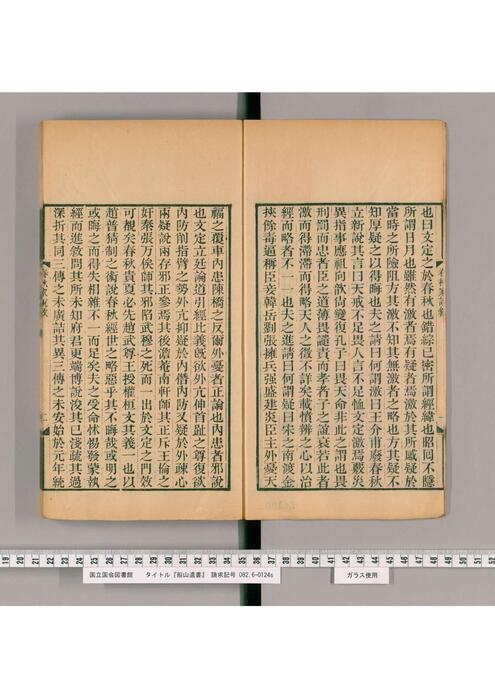 也曰文定之於春秋也錯綜已密所謂經緯也昭囘不隱
所謂日月也雖然有激者焉有疑者焉激於其所感疑於
當時之所險阻方其激不知其無激者之略也方其疑不
知厚疑之以得晦也夫之請曰何謂激曰王介甫廢春秋
立新說其言曰天戒不足畏人言不足恤文定激焉覈災
異指事應祖向歆尙變復孔子曰畏天命非此之謂也畏
刑罰而忠者臣之道薄畏譴責而孝者子之誼衰若此者
激而得滯滯而得略天人之徵不詳矣載愼辨之心以治
經而略者不一一也夫之進請曰何謂疑曰宋之南渡金
挾餘毒逼稱臣妾韓岳劉張擁兵强盛建炎臣主外憂天
福之覆車內患陳橋之反爾外憂者正論也內患者邪說
也文定立廷論道引經比義旣欲外亢伸首趾之尊復欲
內防削指臂之勢外亢抑疑於內僭內防又疑於外疎心
兩疑說兩存邪正參焉其後澹菴南軒師其正斥王倫之
奸秦張万俟師其邪陷武穆之死而一出於文定之門效
可覩矣春秋貴夏必先趙武尊王授權桓文其義一也以
趙普猜制之術說春秋經世之略惡乎其不晦哉或明之
或晦之而得失相雜不一而足矣夫之受命怵惕發蒙執
經而進敬問其所未知府君更端博說沒其已淺疏其過
深折其同三傳之未廣詰其異三傳之未安始於元年統
春秋家說敘
春秋家說敘
二
国立国会図書館 タイトル『船山遺書』 請求記号 082.6-0124s
ガラス使用
19 20 21 22 23 24 25 26 27 28 29 30 31 32 33 34 35 36 37 38 39 40 41 42 43 44 45 46 47 48 49 50 51 52